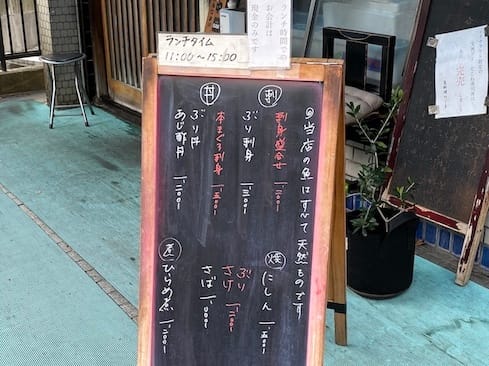 ランチタイム
11:00〜15:00
ランチ時間での
お会計は
現金のみです
◎当店の魚はすべて天然ものです
刺
刺身盛合せ 一、二〇〇
ぶり刺身 一、三〇〇
本まぐろ刺身 一、五〇〇
丼
ぶり丼
あじ酢丼 一、二〇〇
焼
にしん 一、五〇〇
ぶり
さけ 一、二〇〇
さば 一、〇〇〇
ひらめ煮 一、二〇〇